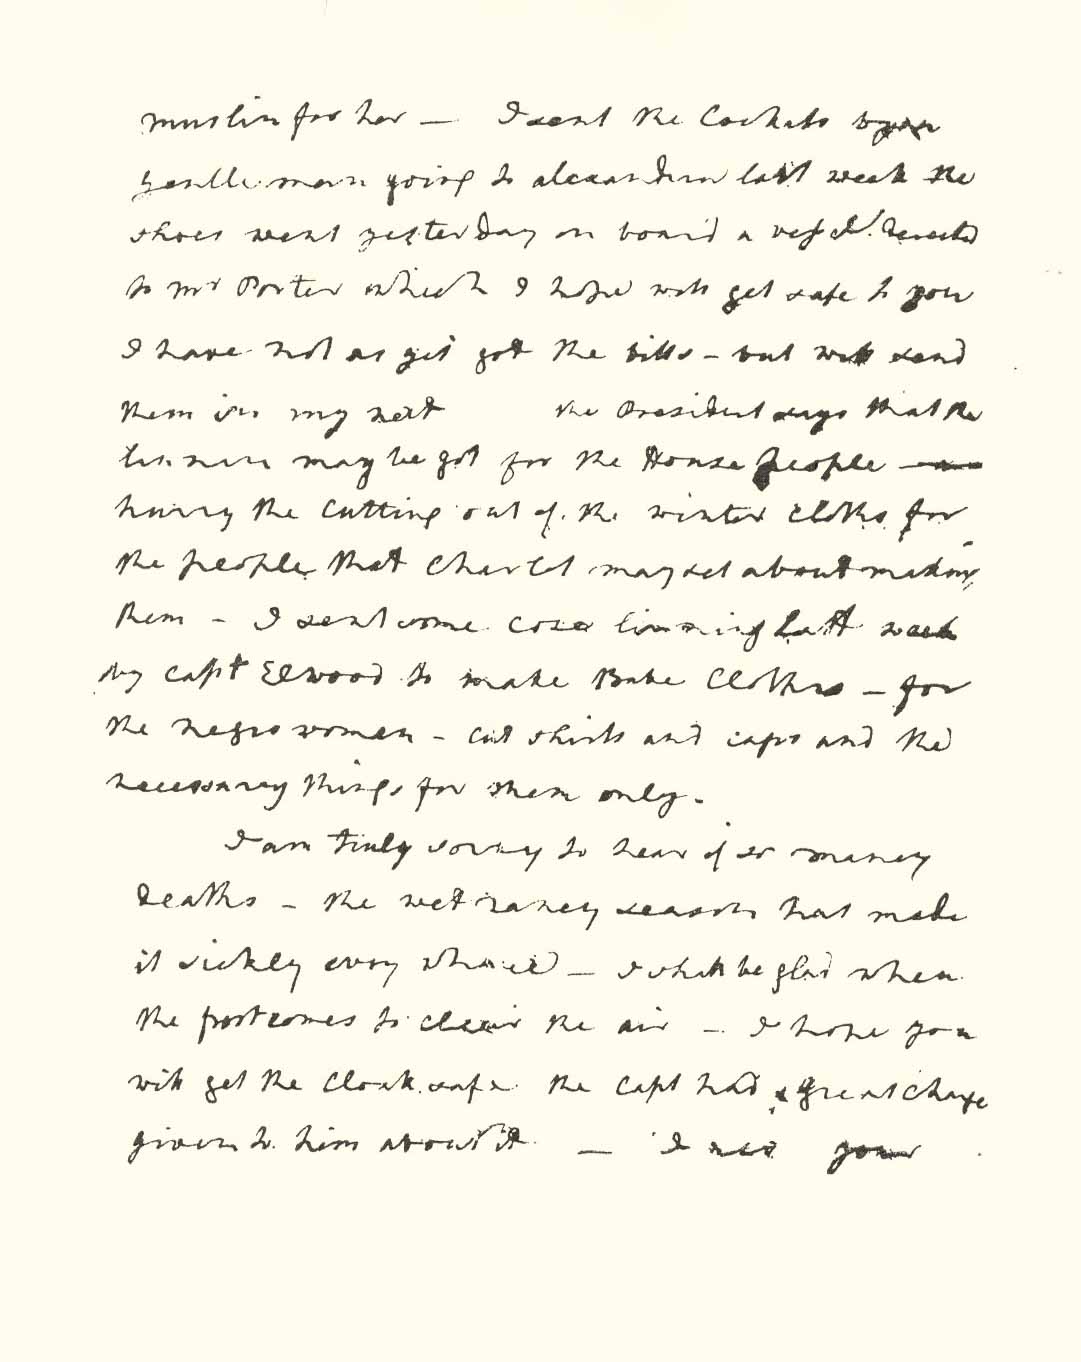 muslin for her — I sent the Cockats by a
gentleman going to alexandria last week the
shoes went yesterday on board a vessel directed
to mr Porter which I hope will get safe to you
I have not as yit got the bills - but will send
them in my next the President says that the
linnen may be got for the House people —
hurry the cutting out of the winter cloths for
the people that Charlot may set about making
them - I sent some cose linning last week
by capt Elwood to make Babe Cloths — for
the negro women - cut shirts and caps and the
necessarey things for them only.
I am truly sorrey to hear of so maney
deaths - the wet raney season has made
it sickly every whare — I shall be glad when
the frost comes to clear the air — I hope you
will get the Cloak safe the capt had a great charge
given to him about it — I see your